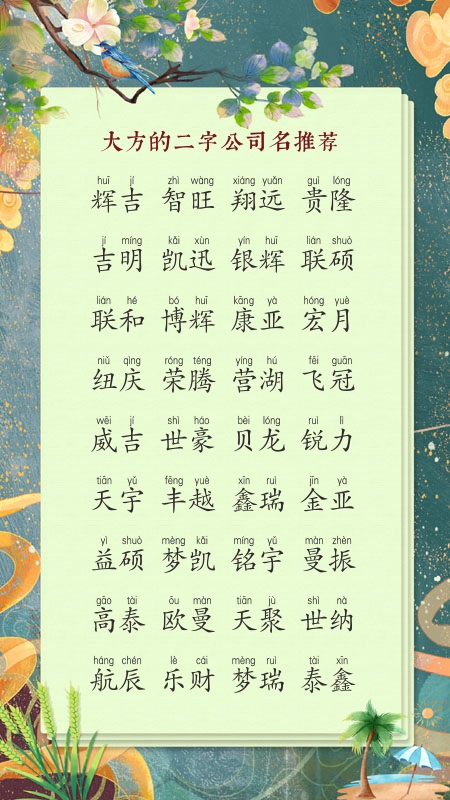 大方的二字公司名推荐
huī jí zhì wàng xiáng yuǎn guì lóng
辉吉 智旺 翔远 贵隆
jí míng kǎi xùn yín huī lián shuò
吉明 凯迅 银辉 联硕
lián hé bó huī kāng yà hóng yuè
联和 博辉 康亚 宏月
niǔ qìng róng téng yíng hú fēi guān
纽庆 荣腾 营湖 飞冠
wēi jí shì háo bèi lóng ruì lì
威吉 世豪 贝龙 锐力
tiān yǔ fēng yuè xīn ruì jīn yà
天宇 丰越 鑫瑞 金亚
yì shuò mèng kǎi míng yǔ màn zhèn
益硕 梦凯 铭宇 曼振
gāo tài ōu màn tiān jù shì nà
高泰 欧曼 天聚 世纳
háng chén lè cái mèng ruì tài xīn
航辰 乐财 梦瑞 泰鑫